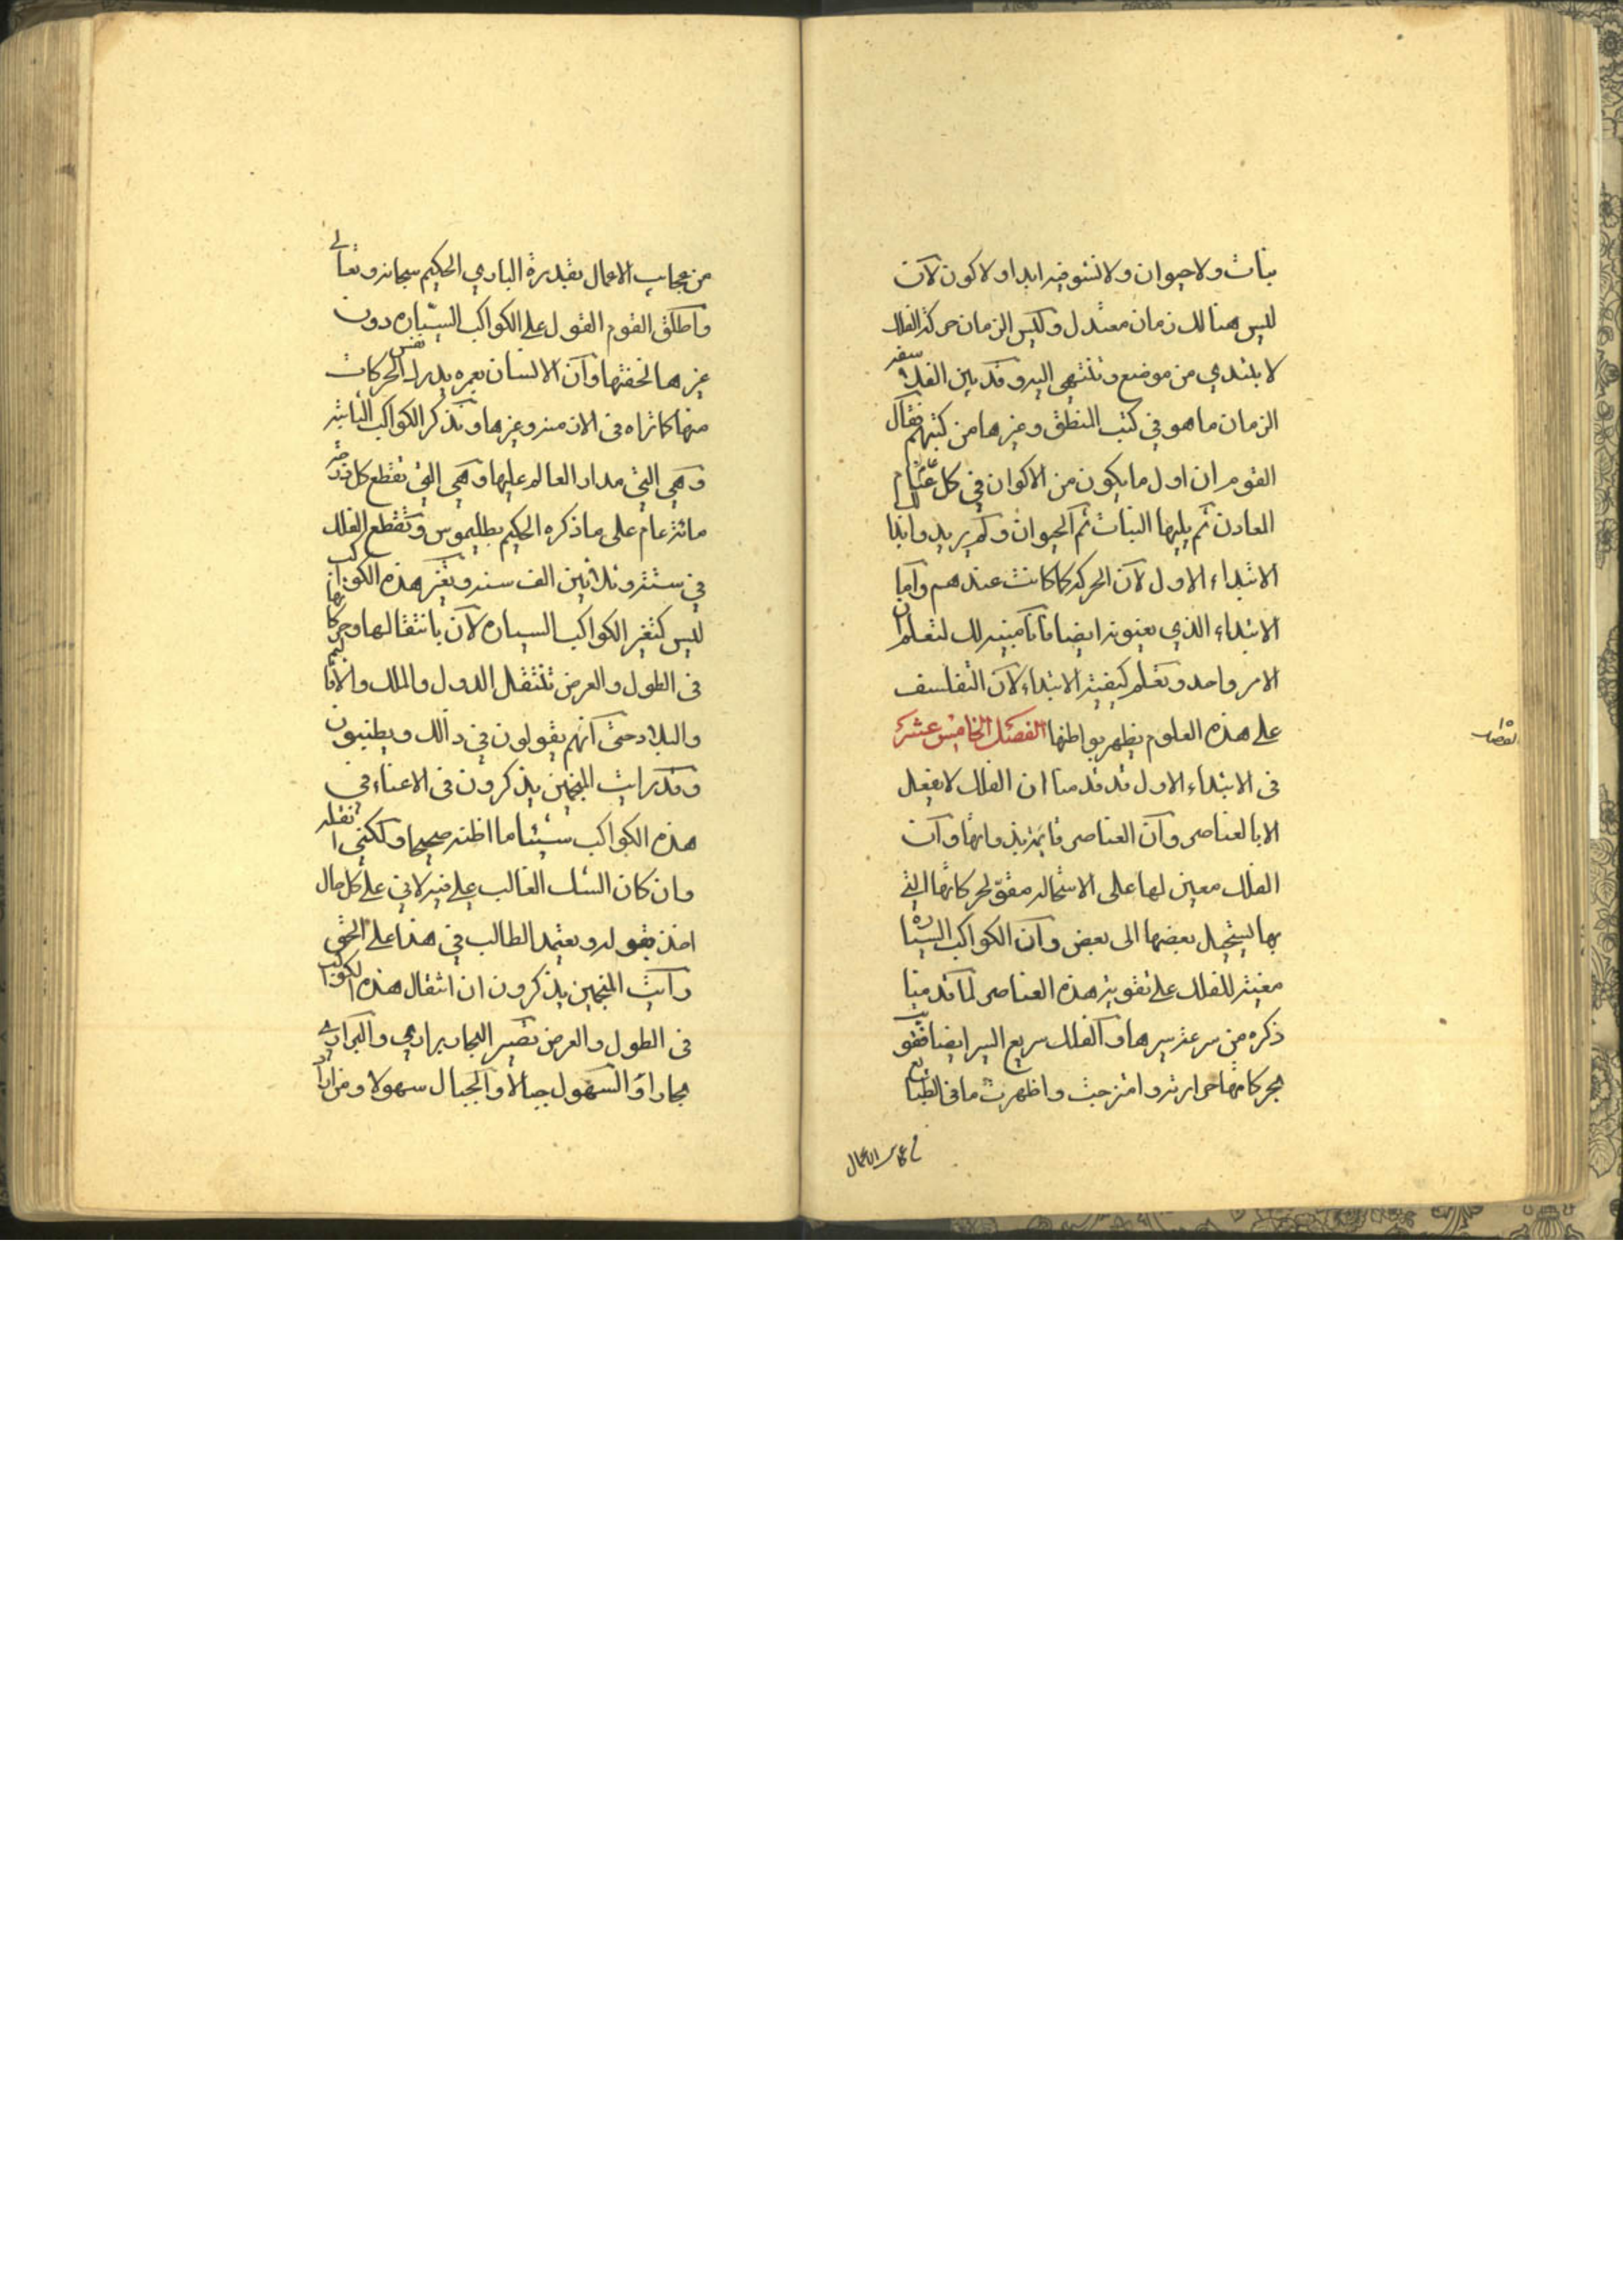 نبات ولا حيوان ولا نشو فيه ابدا ولا كون لان
ليس هنالك زمان معتدل وليس الزمان حركة الفلك
لا يبتدي من موضع وتنتهي اليه وقد بين الفلاسفه
الزمان ما هو في كتب المنطق وغيرها من كتبهم فقال
القوم ان اول ما يكون من الاكوان في كل
المعادن ثم يليها النبات ثم الحيوان ولم يريدوا بهذا
الابتداء الاول لان الحركة كما كانت عندهم واما
الابتداء الذي يعنونه ايضا فانا مبينه لك لتعلم ان
الامر واحد وتعلم كيفية الابتداء لان التفلسف
على هذه العلوم يظهر بواطنها الفصل الخامس عشر
في الابتداء الاول قد قدمنا ان الفلك لا يفعل
الا بالعناصر وان العناصر قايمة بذواتها وان
الفلك معين لها على الاستحاله مقو لحركاتها التي
بها يستحيل بعضها الى بعض وان الكواكب السياره
معينة للفلك على تقوية هذه العناصر لما قدمنا
ذكره من سرعة سيرها والفلك سريع السير ايضا فقويت
بحركاتهما حرارته وامتزجت واظهرت ما في الطبايع
من عجايب الاعمال
١٥
الفصل
من عجايب الاعمال بقدرة الباري الحكيم سبحانه وتعالى
واطلق القوم القول على الكواكب السياره دون
غيرها لخفتها وان الانسان بعمره يدرك نفس الحركات
منها كما تراه في الازمنه وغيرها ونذكر الكواكب الثابته
وهي التي مدار العالم عليها وهي التي تقطع كل درجه
مائة عام على ما ذكره الحكيم بطليموس وتقطع الفلك
في ستة وثلاثين الف سنه وتغير هذه الكواكب
ليس كتغير الكواكب السياره لان بانتقالها وحركاتها
في الطول والعرض تنتقل الدول والملك والاقاليم
والبلاد حتى انهم يقولون في ذالك ويطنبون
وقد رايت المنجمين يذكرون في الاعتناء في
هذه الكواكب شيئا ما اظنه صحيحا ولكني انقله
وان كان الشك الغالب علي فيه لاني على كل حال
اخذ بقوله ويعتمد الطالب في هذا على الحق
رايت المنجمين يذكرون ان انتقال هذه الكواكب
في الطول والعرض تصير البحار براري والبراري
بحارا والسهول جبالا والجبال سهولا